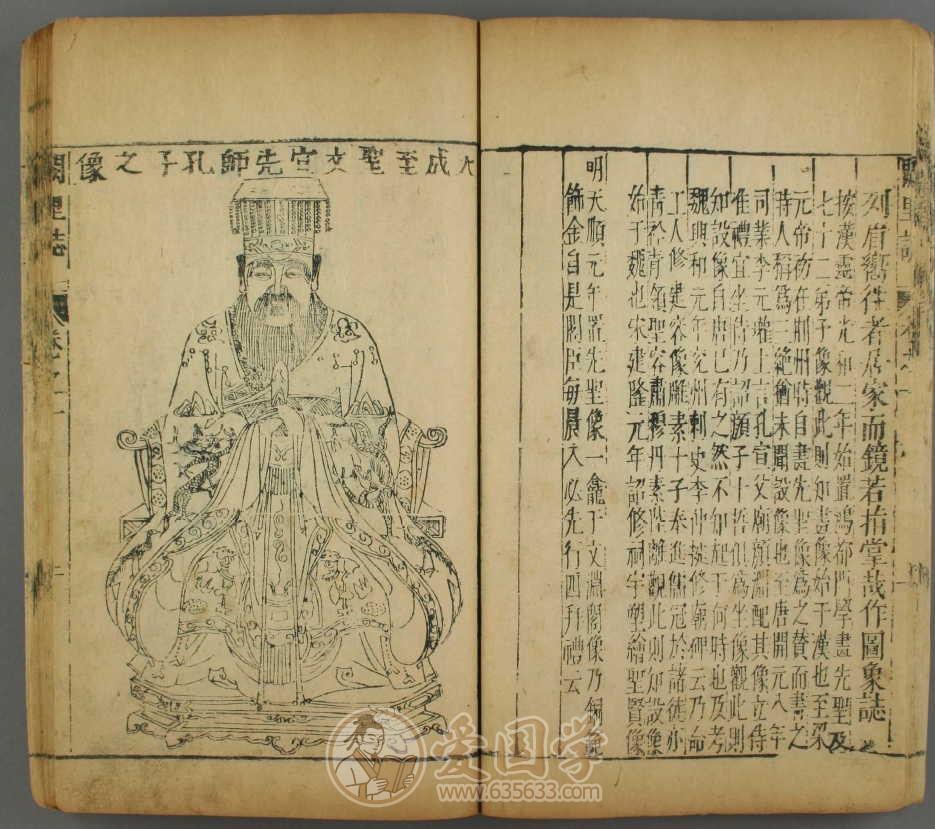 闕里誌
列眉嚮往者居家而鏡若指掌哉作圖象誌
按漢靈帝光和二年始置鴻都門學畫先聖及
七十二弟子像觀此則知畫像始于漢也至梁
元帝初在荆州時自畫先聖像為之贊而書之
時人稱為三絶猶未聞設像也至唐開元八年
司業李元瓘上言孔宣父廟顏淵配其像立侍
准禮宜坐侍乃詔顏子十哲俱為坐像觀此則
知設像自唐已有之然不知起于何時也及考
魏興和元年兖州刺史李仲挺修廟碑云乃命
工人修建容像雕素十子奉進儒冠於諸徒亦
青衿青領聖容肅穆丹素陸離觀此則知設像
始于魏也宋建隆元年詔修祠宇塑繪聖賢像
明天順元年置先聖像一龕于文淵閣像乃銅
飾金自是閣臣每晨入必先行四拜禮云
大成至聖文宣先師孔子之像
闕里誌
卷之一
爱国学
www.635633.com